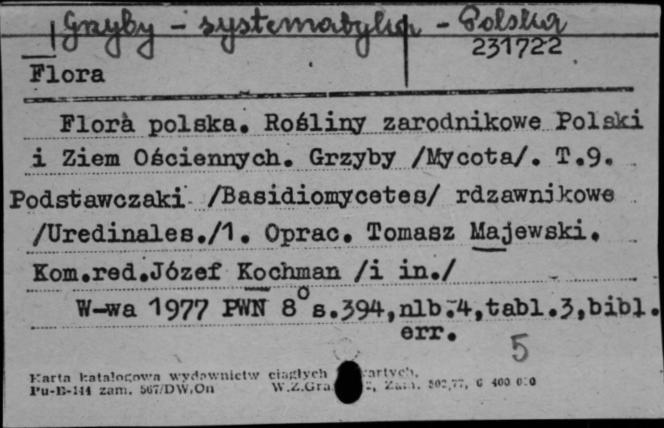 Grzyby - systematyka - Polska
231722
Flora
Flora polska. Rośliny zarodnikowe Polski
i Ziem Ościennych. Grzyby /Mycota/. T.9.
Podstawczaki /Basidiomycetes/ rdzawnikowe
/Uredinales./1. Oprac. Tomasz Majewski.
Kom.red.Józef Kochman /i in./
W-wa 1977 PWN 8° s.394,nlb.4,tabl.3,bibl.
err.
5
Karta katalogowa wydawnictw ciągłych
Pu-B-144 zam. 567/DW,On W.Z.Gra Zam. 802/77, 400 000